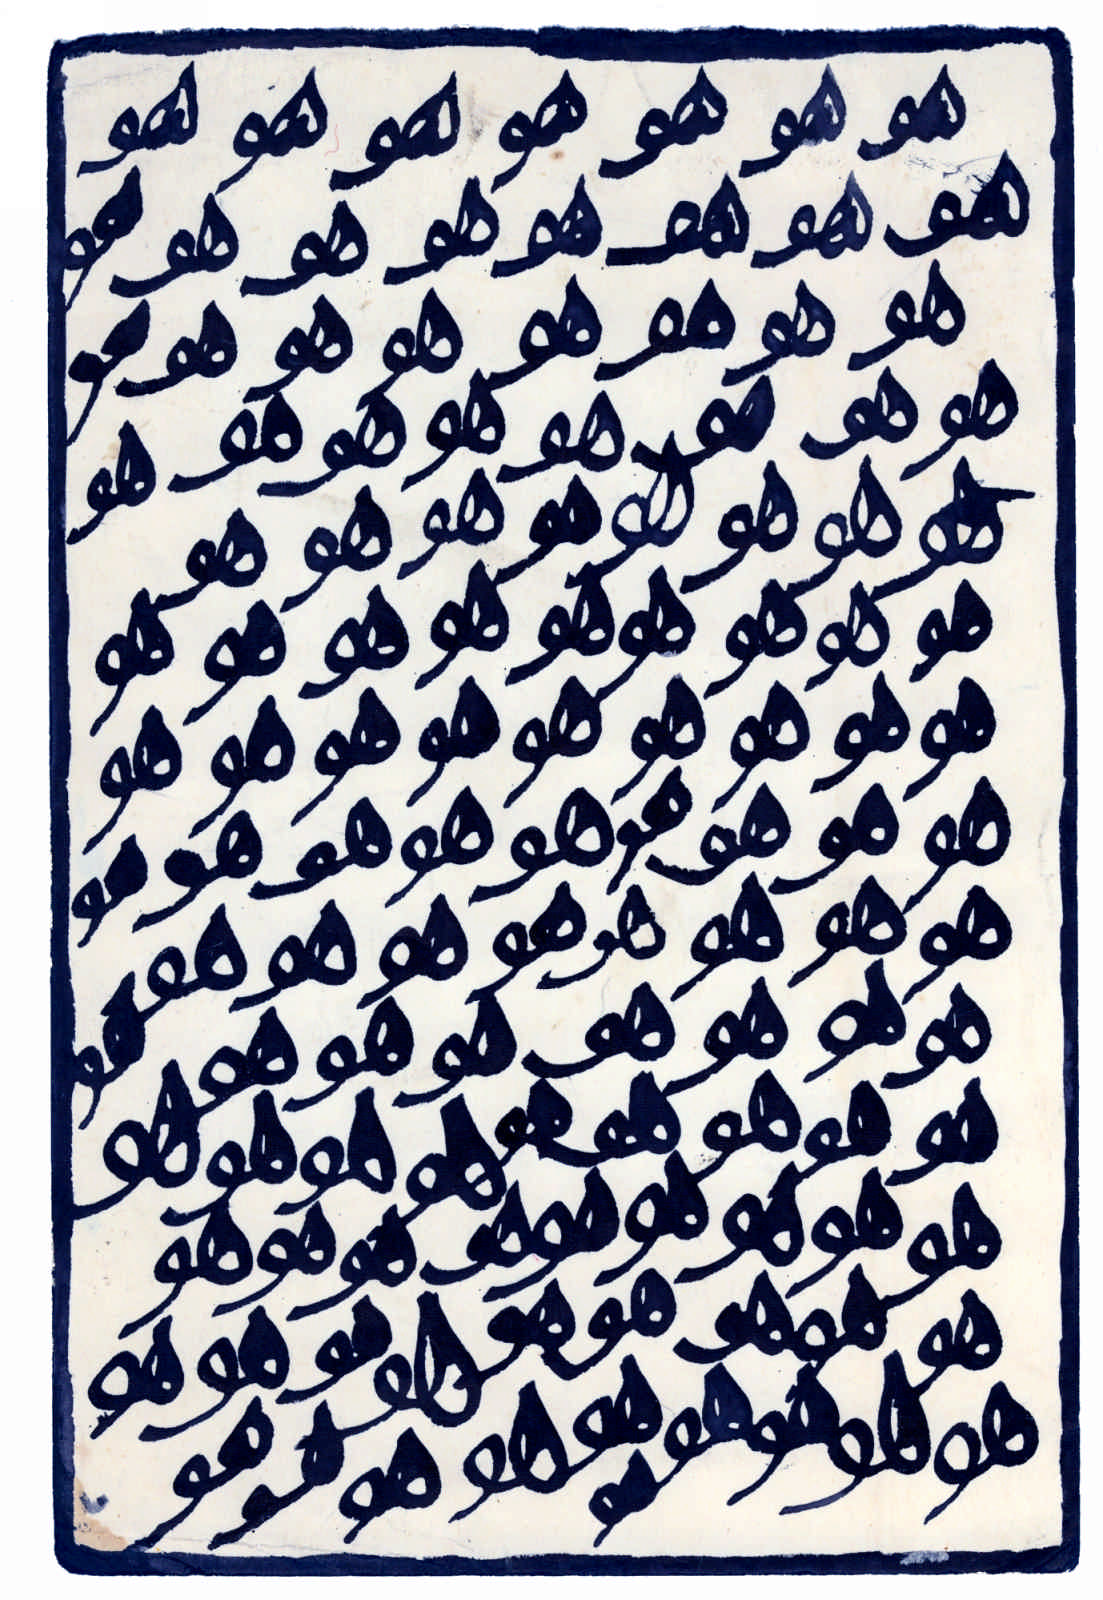 هو هو هو هو هو هو هو
هو هو هو هو هو هو هو هو
هو هو هو هو هو هو هو هو
هو هو هو هو هو هو هو هو
هو هو هو هو هو هو هو هو
هو هو هو هو هو هو هو هو هو
هو هو هو هو هو هو هو هو هو
هو هو هو هو هو هو هو هو هو
هو هو هو هو هو هو هو هو
هو هو هو هو هو هو هو هو
هو هو هو هو هو هو هو هو هو
هو هو هو هو هو هو هو هو هو
هو هو هو هو هو هو هو هو هو
هو هو هو هو هو هو هو هو هو
هو